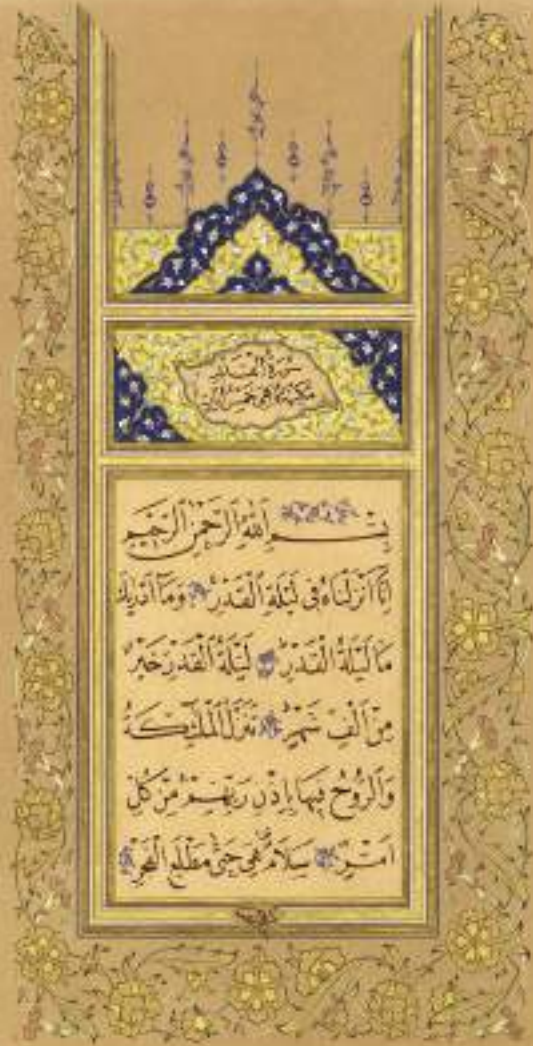 سُورَةُ الْقَدْرِ
مَكِّيَّةٌ وَهِيَ خَمْسُ
بِسْمِ اللّٰهِ الرَّحْمٰنِ الرَّحِيمِ
اِنَّا اَنْزَلْنَاهُ فِى لَيْلَةِ الْقَدْرِ وَمَا اَدْرٰيكَ
مَا لَيْلَةُ الْقَدْرِ لَيْلَةُ الْقَدْرِ خَيْرٌ
مِنْ اَلْفِ شَهْرٍ تَنَزَّلُ الْمَلٰٓئِكَةُ
وَالرُّوحُ فِيهَا بِاِذْنِ رَبِّهِمْ مِنْ كُلِّ
اَمْرٍ سَلَامٌ هِىَ حَتّٰى مَطْلَعِ الْفَجْرِ